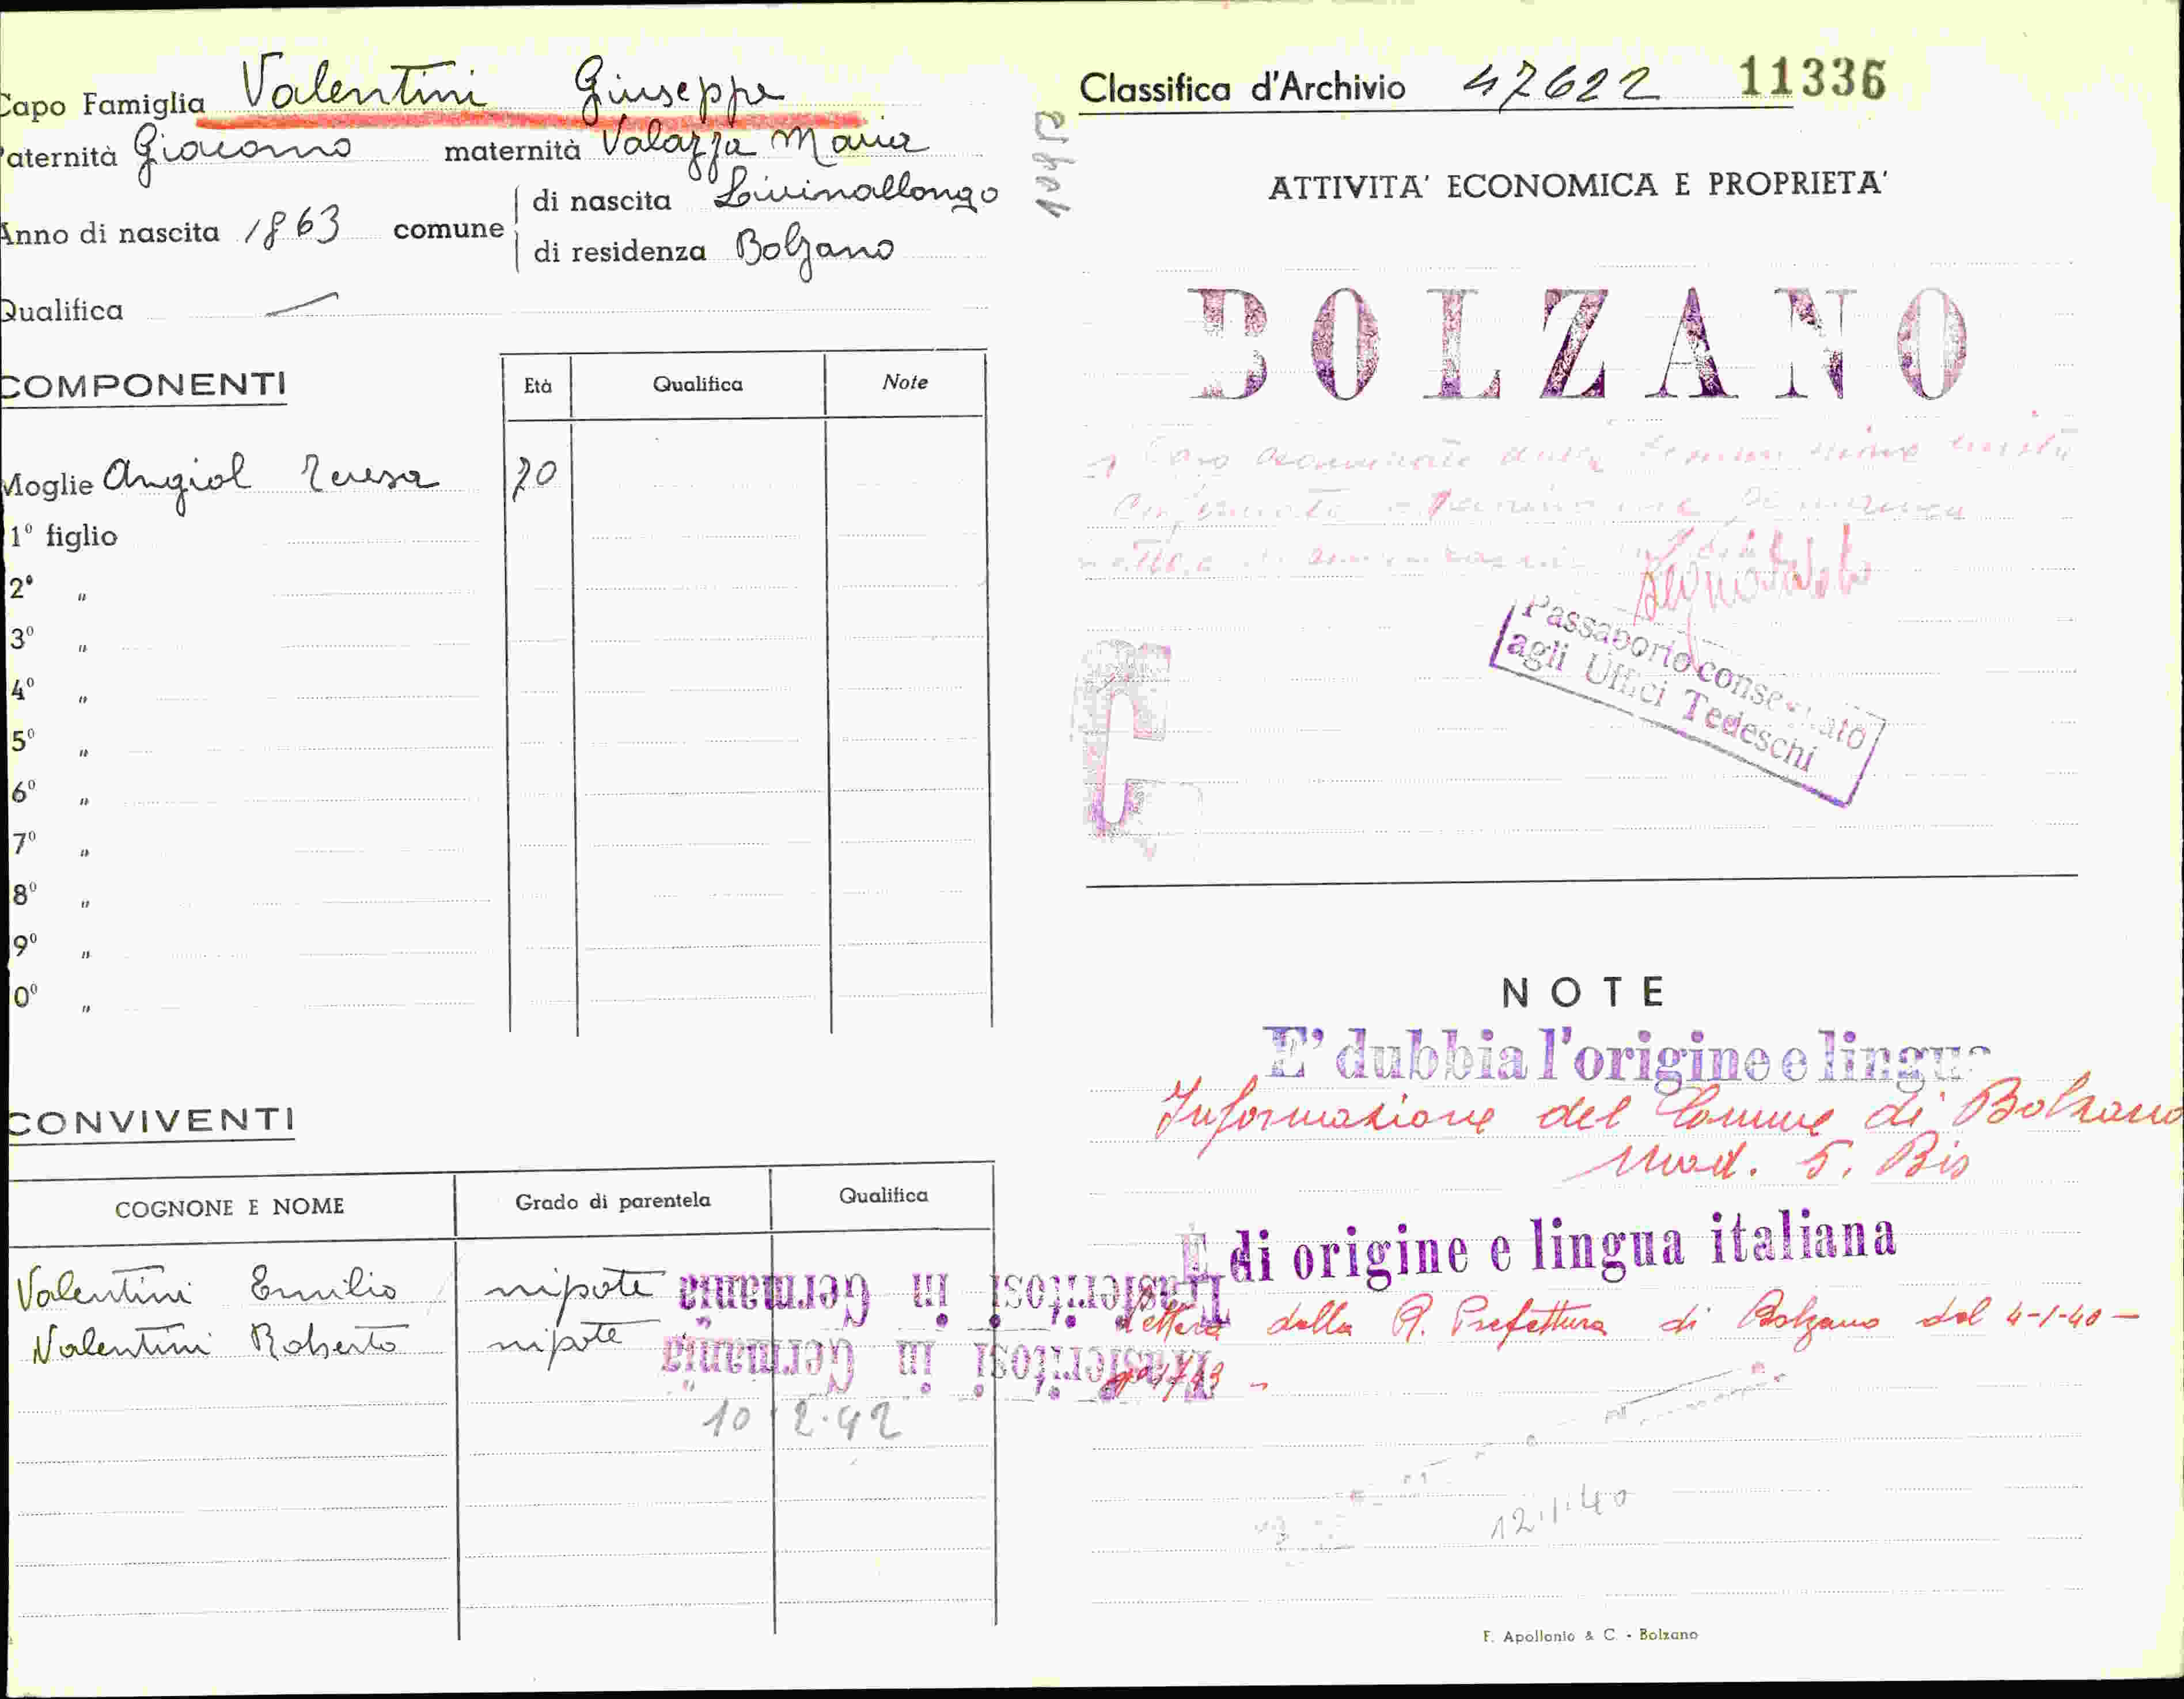 Capo Famiglia Valentini Giuseppe
Paternità Giacomo maternità Valazza Maria
Anno di nascita 1863 comune di nascita Livinallongo
di residenza Bolzano
Qualifica —
COMPONENTI Età Qualifica Note
Moglie Angiol Teresa 70
1° figlio
2° "
3° "
4° "
5° "
6° "
7° "
8° "
9° "
0° "
CONVIVENTI
COGNONE E NOME Grado di parentela Qualifica
Valentini Emilio nipote Trasferitosi in Germania
Valentini Roberto nipote Trasferitosi in Germania
10 2.42
Classifica d'Archivio 47622 11336
ATTIVITA' ECONOMICA E PROPRIETA'
BOLZANO
Passaporto
agli Uffici Tedeschi
NOTE
E' dubbia l'origine e lingua
Informazione del Comune di Bolzano
Mod. 5. Bis
E di origine e lingua italiana
lettera della R. Prefettura di Bolzano del 4-1-40 –
12.1.40
F. Apollonio & C. - Bolzano